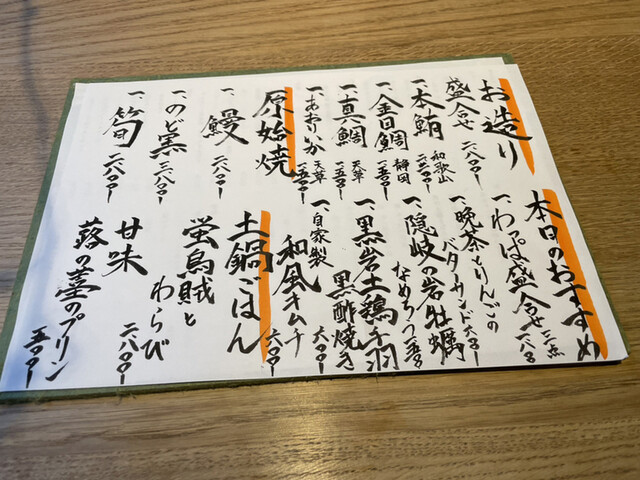 お造り
盛合せ 二八〇〇ー
一、本鮪 和歌山 二二〇〇ー
一、金目鯛 静岡
一、真鯛 天草 一五〇〇ー
一、あおりいか 天草 一五〇〇ー
原始焼
一、鰻 二八〇〇ー
一、のど黒 三八〇〇ー
一、筍 一八〇〇ー
本日のおすすめ
一、わっぱ盛合せ 三点
一、晩茶とりんごの
バターサンド 六〇〇ー
一、隠岐の岩牡蠣
一、黒岩土鶏手羽
黒酢焼き
一、自家製
和風キムチ 六〇〇ー
土鍋ごはん
蛍烏賊と
わらび
二八〇〇ー
甘味
蕗の薹のプリン
五〇〇ー